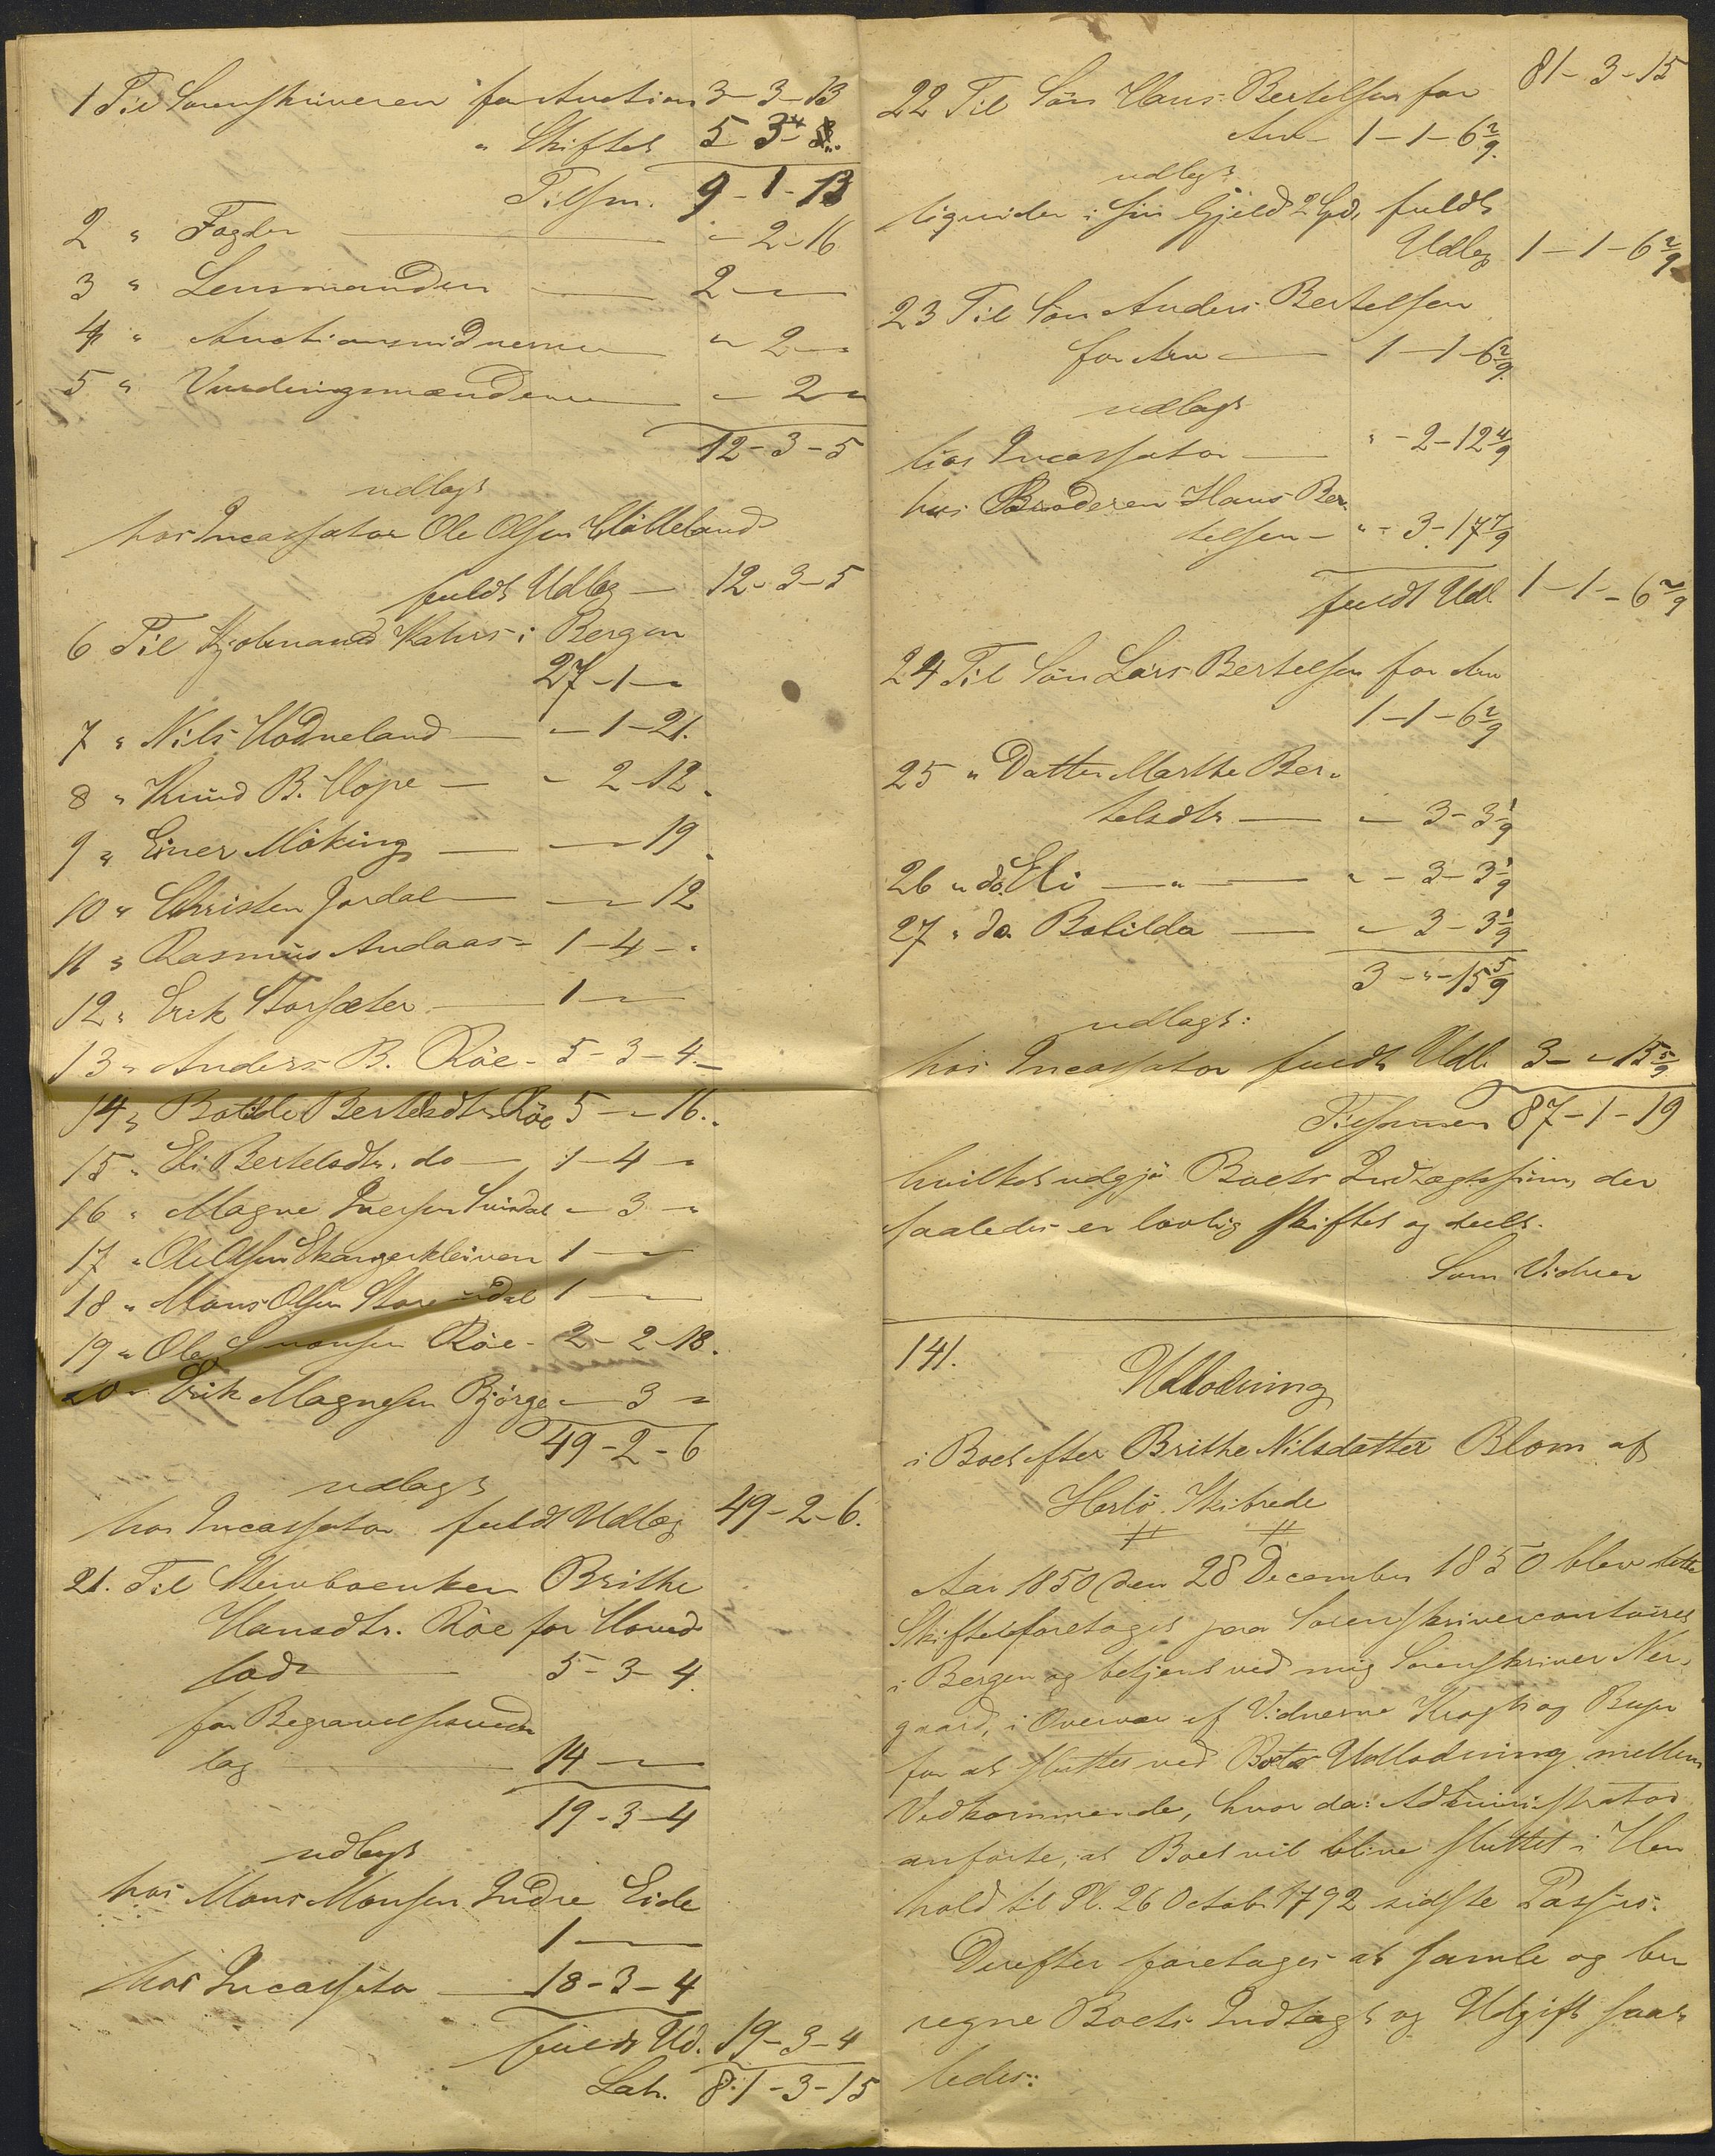 1 Til Sorenskriveren for Auction 3-3-13
" Skiftet 5 3 4
Tilsm. 9-1-13
2 " Fogden " 2-16
3 " Lensmanden 2 - "
4 " Auctionsvidnerne " 2 - "
5 " Vurderingsmændene " 2 "
12-3-5
udlagt
hos Incassator Ole Olsen
fuldt Udlæg - 12-3-5
6 Til Kjøbmand Kahrs i Bergen
27-1-"
7 " Nils Hodneland - " 1-21.
8 " Knud B. Hope - " 2-12.
9 " Einer Möking - " 19.
10 " Christen Jordal - " 12
11 " Rasmus Andaas - 1-4-"
12 " Erik Storsæter - 1 "
13 " Anders B. Röe - 5-3-4.
14 " Botilde Bertelsdtr Röe 5 - " 16.
15 " Eli Bertelsdtr. do - 1-4-"
16 " Magne Iversen - 3 - "
17 " Ole Olsen Ekangerkleiven 1 - "
18 " Mons Olsen 1 - "
19 " Ole Röe - 2-2-18.
20 " Erik Magnesen Bjørge " 3 "
49-2-6
udlagt
hos Incassator fuldt Udlæg 49-2-6.
21. Til Stervboenken Brithe
Hansdtr. Röe for Hoved
lod 5-3-4.
for Begravelsesudlæg
14 - "
19-3-4
udlagt
hos Mons Monsen Indre Eide
1 - "
hos Incassator 18-3-4
fuldt Ud. 19-3-4
Lat. 81-3-15
81-3-15
22 Til Sön Hans Bertelsen for
Arv - 1-1-6 2/9.
udlagt
liqvider i sin Gjeld 2 Spd, fuldt
Udlæg 1-1-6 2/9
23 Til Sön Anders Bertelsen
for Arv 1-1-6 2/9.
udlagt
hos Incassator " - 2-12 4/9
hos Broderen Hans Ber
telsen - " - 3-17 7/9
fuldt Udl 1-1-6 2/9
24 Til Sön Lars Bertelsen for Arv
1-1-6 2/9
25 " Datter Marthe Ber-
telsdtr " 3-3 1/9
26 " do. Eli " " - 3-3 1/9
27 " do. Botilda " 3-3 1/9
3-"-15 5/9
udlagt:
hos Incassator fuldt Udl. 3-"-15 5/9
Tilsammen 87-1-19
hvilket udgjö Boets Indtægtssum, der
saaledes er lovlig skiftet og deelt.
Som Vidner
141.
Udlodning
i Boet efter Brithe Nilsdatter Blom af
Herlö Skibrede
Aar 1850 den 28 December 1850 blev dette
Skifte foretaget paa Sorenskrivercontoiret
i Bergen og betjent ved mig Sorenskriver Ner-
gaard, i Overvær af Vidnerne Krogh og
for at sluttes ved Boets Udlodning mellem
Vedkommende, hvor da: Administrator
anförte, at Boet vil blive sluttet i Hen
hold til Pl. 26 Octob. 1792 sidste Passus.
Derefter foretages at samle og be
regne Boets Indtægt og Udgift saa-
ledes: